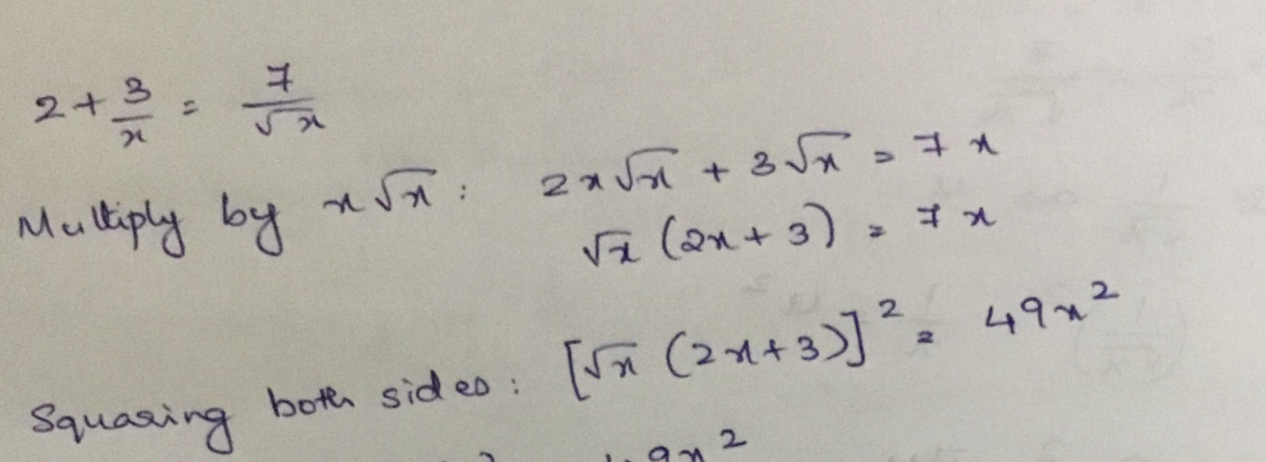 2 + 3/x = 7/√x
Multiply by x√x : 2x√x + 3√x = 7x
√x (2x + 3) = 7x
Squaring both sides : [√x (2x+3)]² = 49x²
9x²